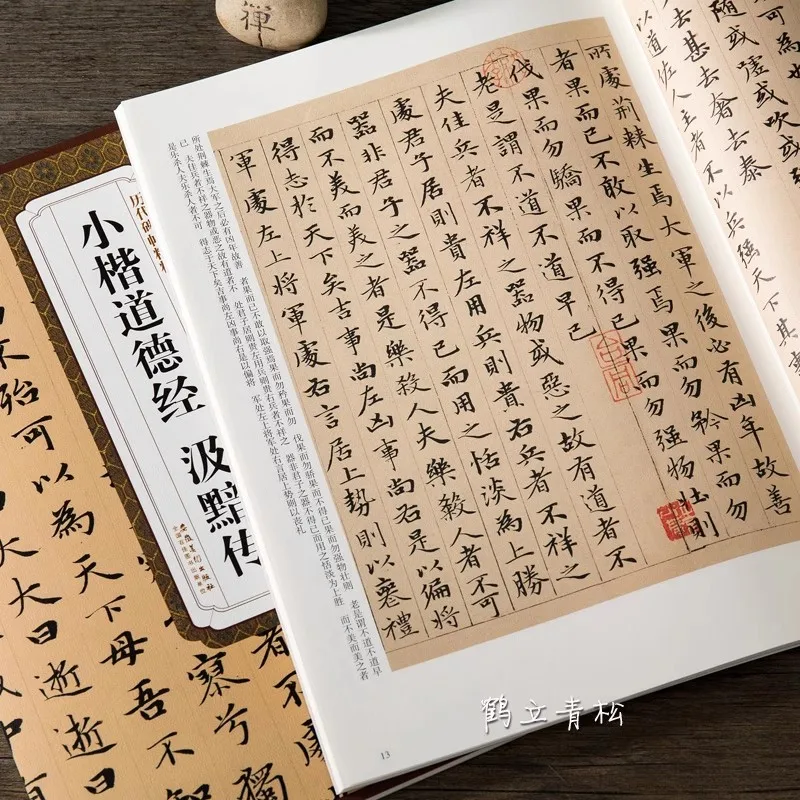 禅
可為也
隨或噓或吹或
去甚去奢去泰
以道佐人主者不以兵强天下其事
所處荊棘生焉大軍之後必有凶年故善
者果而已不敢以取强焉果而勿矜果而勿
伐果而勿驕果而不得已果而勿强物壯則
老是謂不道不道早已
夫佳兵者不祥之器物或惡之故有道者不
處君子居則貴左用兵則貴右兵者不祥之
器非君子之器不得已而用之恬淡為上勝
而不美而美之者是樂殺人夫樂殺人者不可
得志於天下矣吉事尚左凶事尚右是以偏將
軍處左上將軍處右言居上勢則以喪禮
所处荆棘生焉大军之后必有凶年故善 者果而已不敢以取强焉果而勿矜果而勿 伐果而勿骄果而不得已果而勿强物壮则 老是谓不道不道早
已 夫佳兵者不祥之器物或恶之故有道者不 处君子居则贵左用兵则贵右兵者不祥之 器非君子之器不得已而用之恬淡为上胜 而不美而美之者
是乐杀人夫乐杀人者不可 得志于天下矣吉事尚左凶事尚右是以偏将 军处左上将军处右言居上势则以丧礼
13
历代碑帖精粹
小楷道德经 汲黯传
安徽美术出版社
全国百佳图书出版单位
寥兮獨
不殆可以為天下母吾不
大大曰逝逝曰
鹤立青松